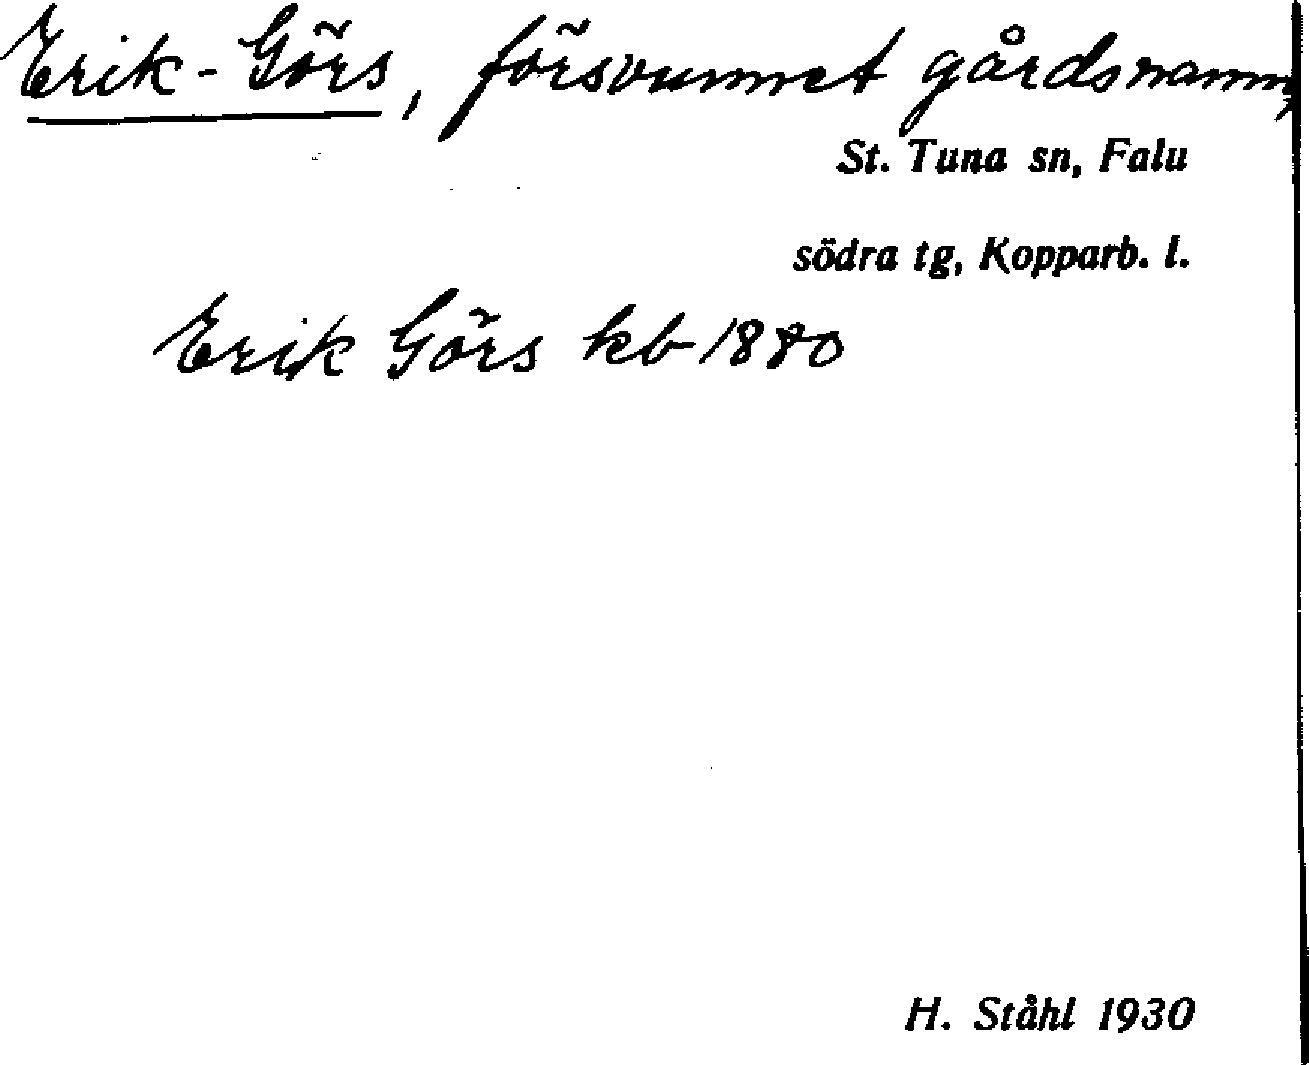 Erik-Görs, försvunnet gårdsnamn,
St. Tuna sn, Falu
södra tg, Kopparb. l.
Erik Görs kb 1880
H. Ståhl 1930